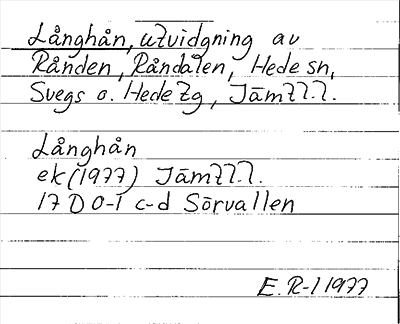 Långhån, utvidgning av
Rånden, Råndalen, Hede sn,
Svegs o. Hede tg, Jämtl.l.
Långhån
ek (1977) Jämtl.l.
17 D 0-1 c-d Sörvallen
E. R-l 1977